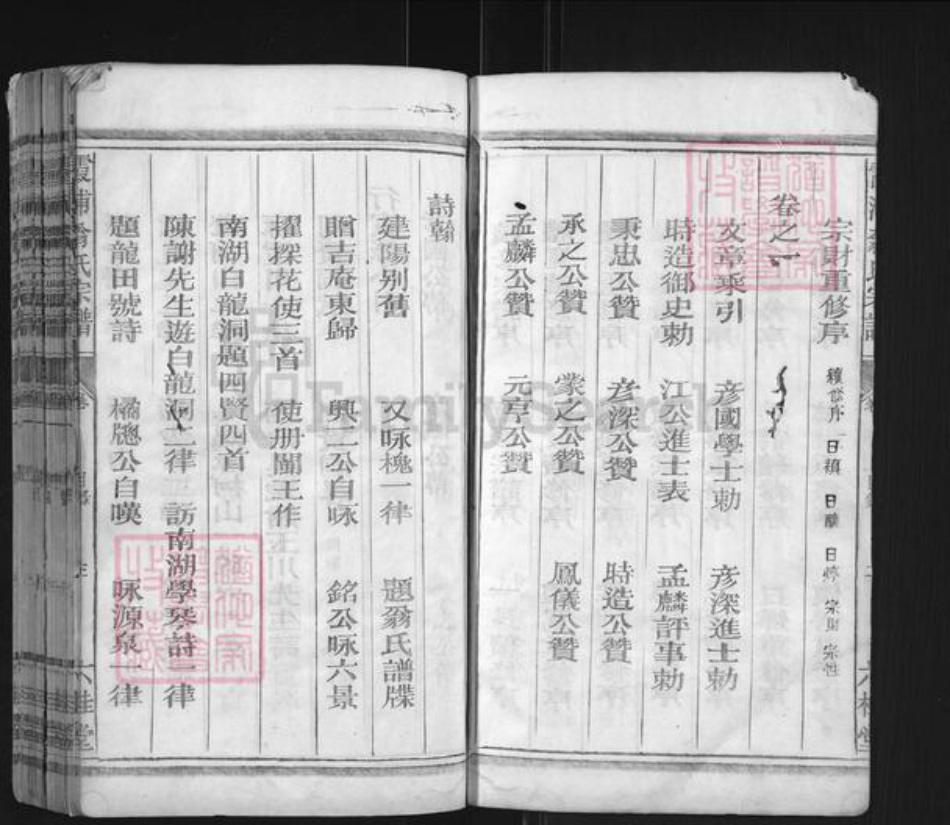 宗財重修序 續修序 日積 日 日 宗財 宗性
卷之一
文章乘引 彥國學士勅 彥深進士勅
時造御史勅 江公進士表 孟麟評事勅
秉忠公贊 彥深公贊 時造公贊
承之公贊 蒙之公贊 鳳儀公贊
孟麟公贊 元亨公贊
六桂堂
詩翰
建陽別舊 又咏槐一律 題翁氏譜牒
贈吉庵東歸 興二公自咏 銘公咏六景
擢探花使三首 使册閩王作
南湖白龍洞題四賢四首
陳謝先生遊白龍洞二律 訪南湖學琴詩一律
題龍田號詩 橘牕公自嘆 咏源泉一律
霞浦翁氏宗譜 六桂堂
FamilySearch